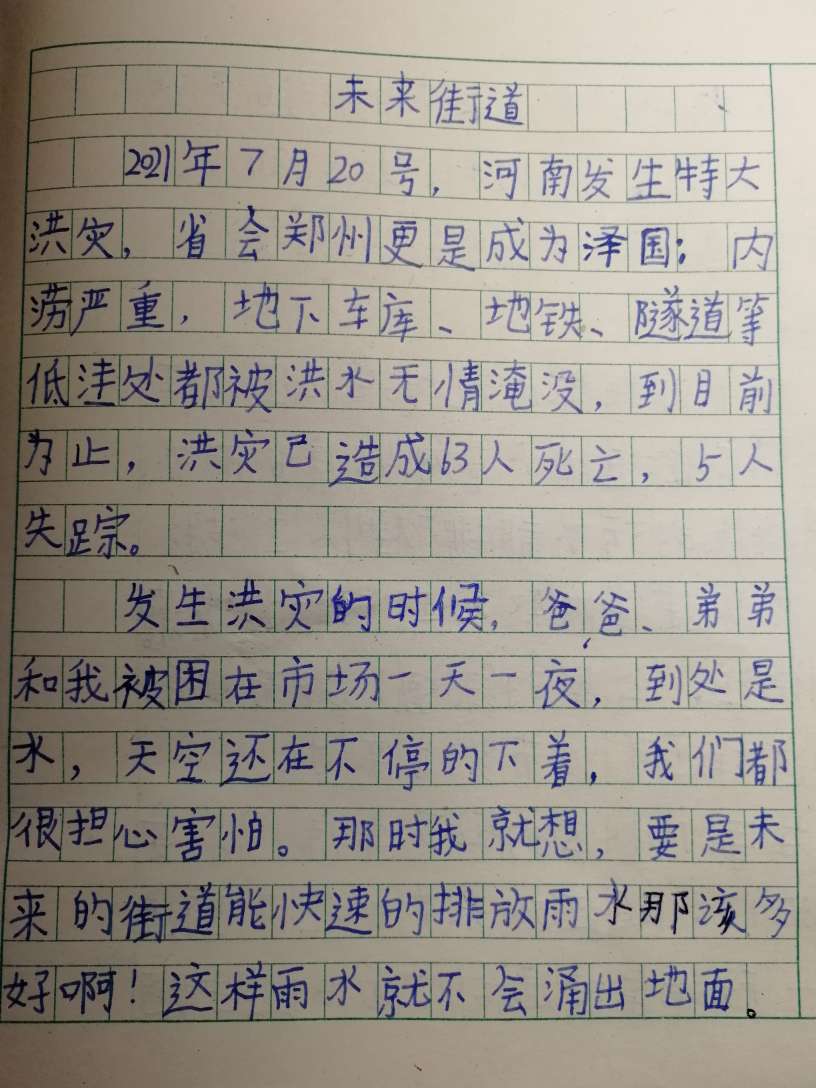 未来街道
2021年7月20号，河南发生特大
洪灾，省会郑州更是成为泽国；内
涝严重，地下车库、地铁、隧道等
低洼处都被洪水无情淹没，到目前
为止，洪灾已造成63人死亡，5人
失踪。
发生洪灾的时候，爸爸、弟弟
和我被困在市场一天一夜，到处是
水，天空还在不停的下着，我们都
很担心害怕。那时我就想，要是未
来的街道能快速的排放雨水那该多
好啊！这样雨水就不会涌出地面。